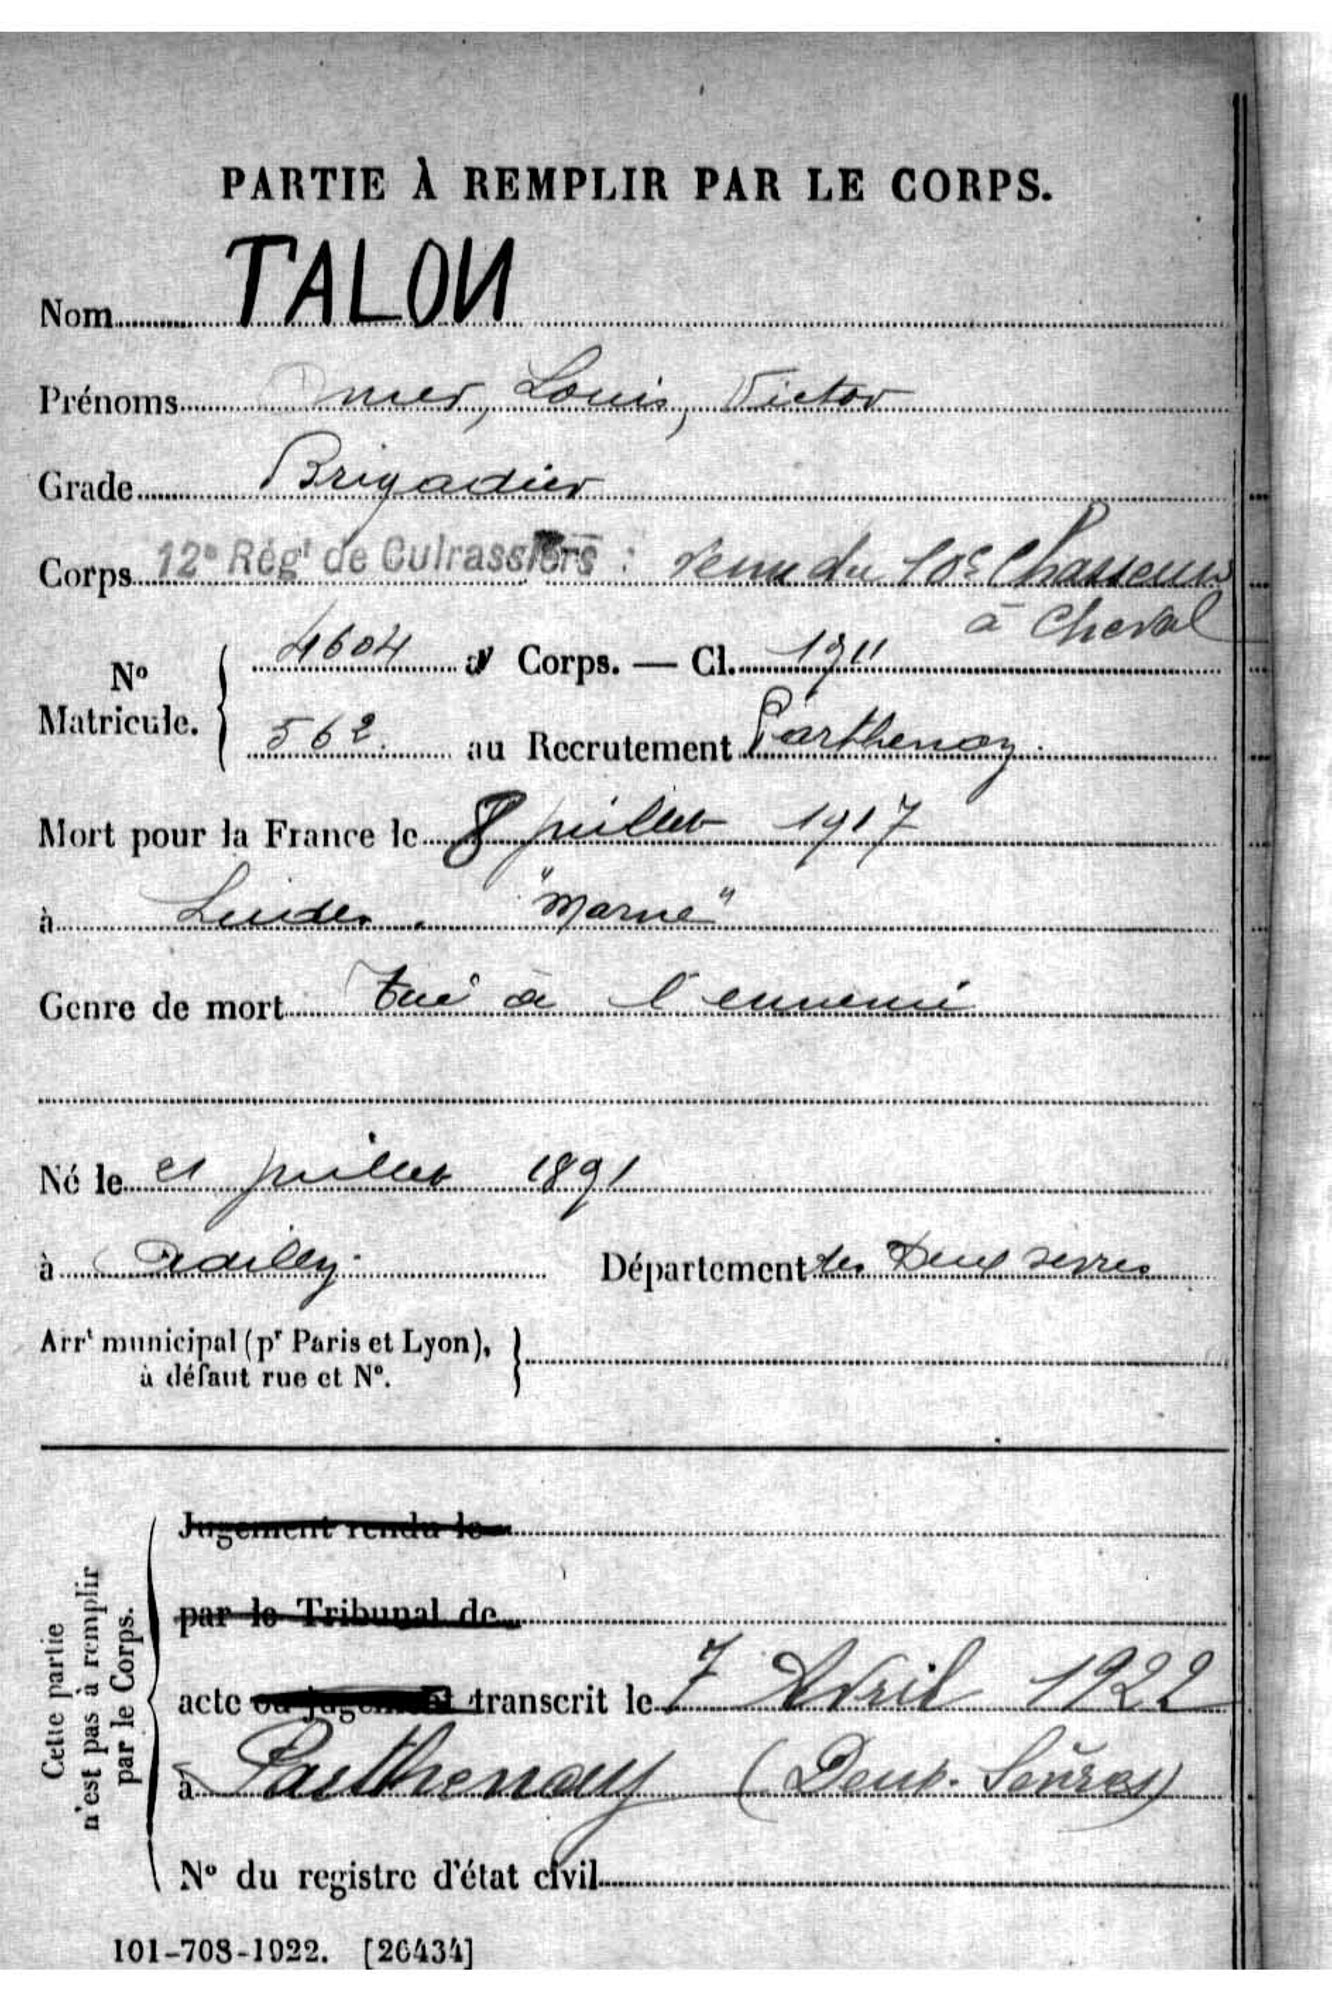 PARTIE À REMPLIR PAR LE CORPS.
Nom TALON
Prénoms Omer, Louis, Victor
Grade Brigadier
Corps 12e Régt de Cuirassiers : Venu du 10e Chasseurs
à Cheval
No Matricule. { 4604 au Corps. — Cl. 1911
562. au Recrutement Parthenay.
Mort pour la France le 8 juillet 1917
à "Marne"
Genre de mort Tué à l'ennemi
Né le 21 juillet 1891
à Adilly. Département des Deux Sèvres
Arrt municipal (pr Paris et Lyon),
à défaut rue et No.
Cette partie
n'est pas à remplir
par le Corps.
Jugement rendu le
par le Tribunal de
acte ou jugement transcrit le 7 Avril 1922
à Parthenay (Deux-Sèvres)
No du registre d'état civil
101-708-1922. [26434]